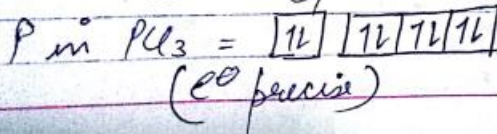 P in PCl3 = [1L] [1L|1L|1L]
(e⊖ precise)